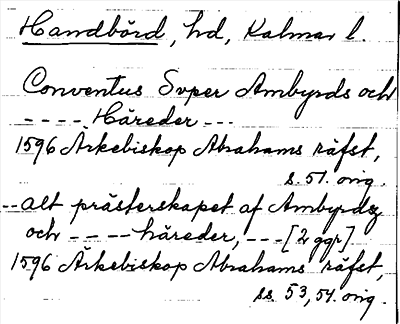 Handbörd, hd, Kalmar l.
Conventus Sverper Ambyrds och
---- Häreder ---
1596 Ärkebiskop Abrahams räfst,
s. 51. orig.
--alt prästerskapet af Ambyrdz
och ---- häreder, --- [2 ggr].
1596 Ärkebiskop Abrahams räfst,
ss. 53, 54. orig.